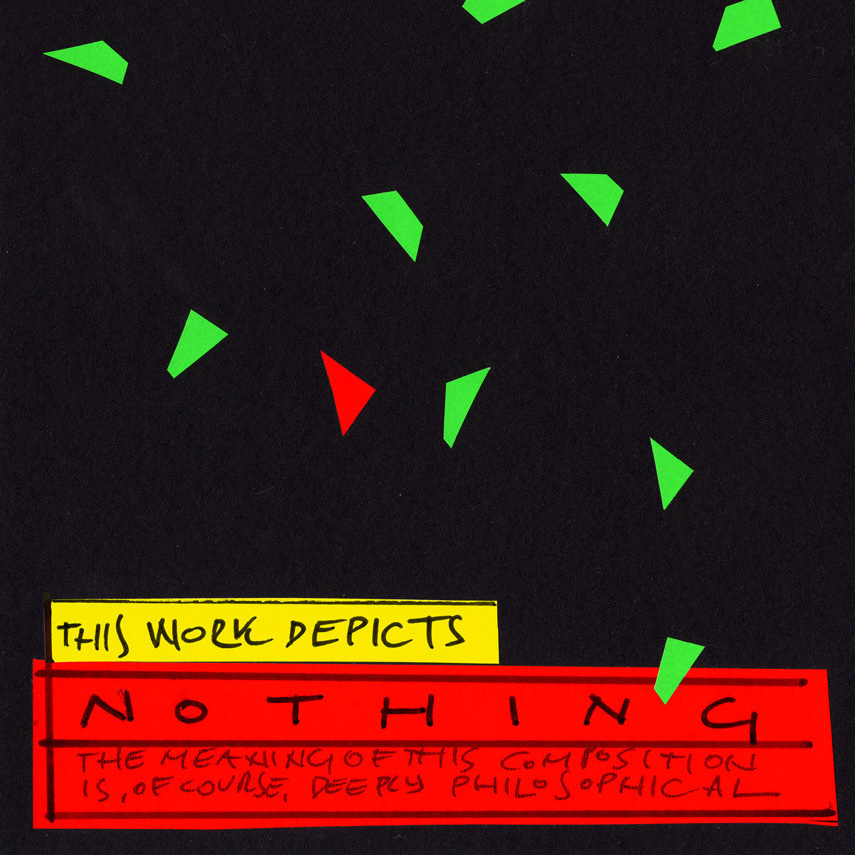 THIS WORK DEPICTS
NOTHING
THE MEANING OF THIS COMPOSITION
IS, OF COURSE, DEEPLY PHILOSOPHICAL